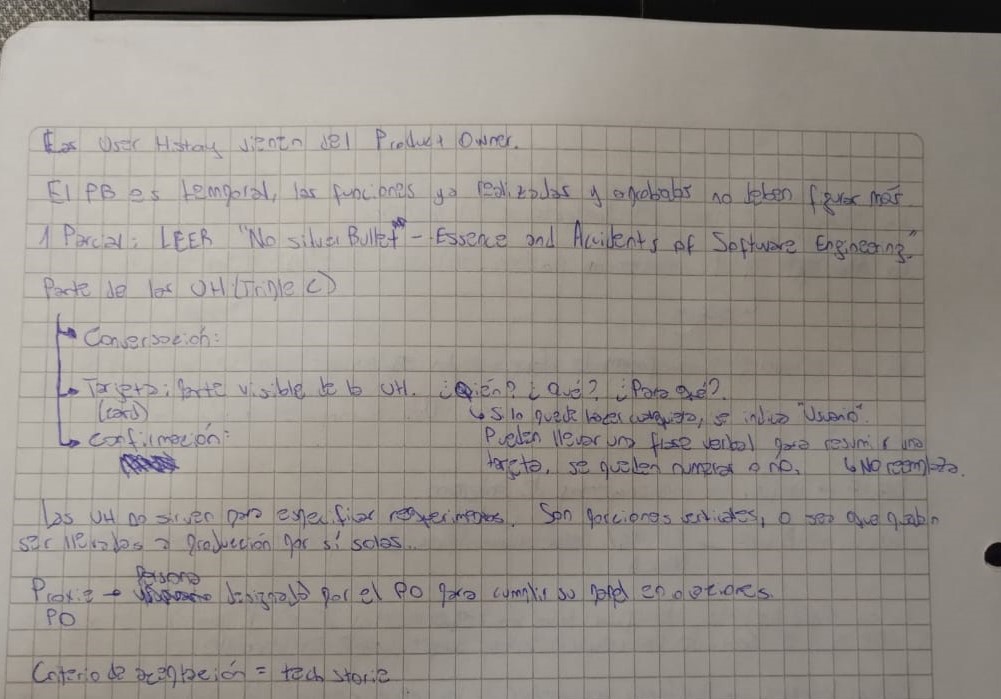 Las User Hstory vienen del Product Owner.
El PB es temporal, las funciones ya realizadas y aprobabas no deben figurar más.
1 Parcial: LEER "No silver Bullet" - Essence and Accidents of Software Engineering."
Parte de las UH (Triple C)
Conversación:
Tarjeta: Parte visible de la UH. ¿Quién? ¿Qué? ¿Para qué?
(card) Si lo puede hacer cualquiera, se indica "Usuario".
Confirmación: Pueden llevar una frase verbal para resumir una
tarjeta, se pueden numerar o no. No reemplaza.
Las UH no sirven para especificar requerimientos. Son porciones verticales, o sea que puedan
ser llevadas a producción por sí solas.
Proxie → Persona designada por el PO para cumplir su papel en ocaciones.
PO
Criterio de aceptación = tech storie